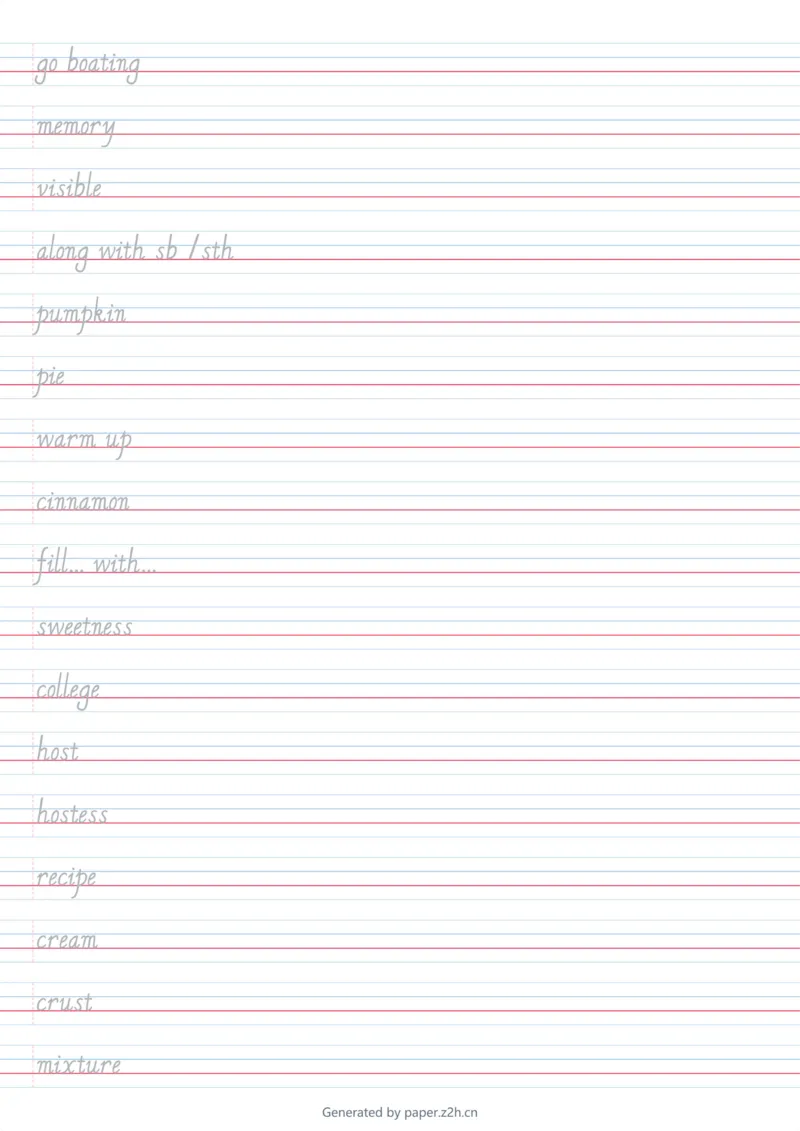 go boating
memory
visible
along with sb /sth
pumpkin
pie
warm up
cinnamon
fill... with...
sweetness
college
host
hostess
recipe
cream
crust
mixture
Generated by paper.z2h.cn